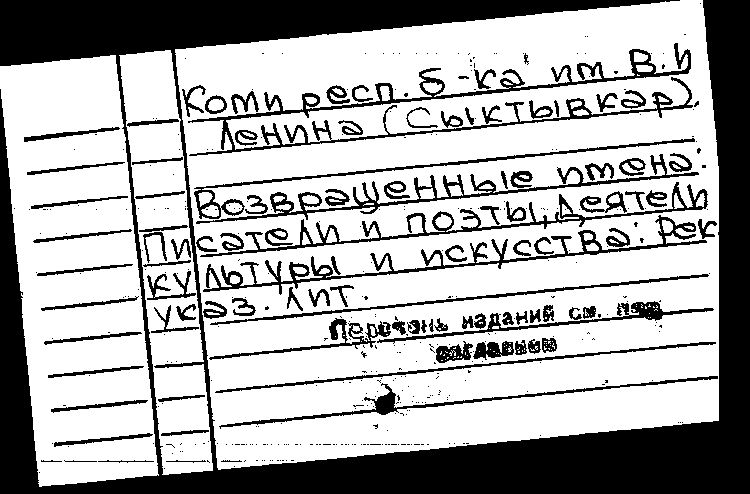 Коми респ. б-ка им. В.И
Ленина (Сыктывкар).
Возвращенные имена:
Писатели и поэты, деятели
культуры и искусства: Рек.
указ. лит.
Перечень изданий см. под
заглавием